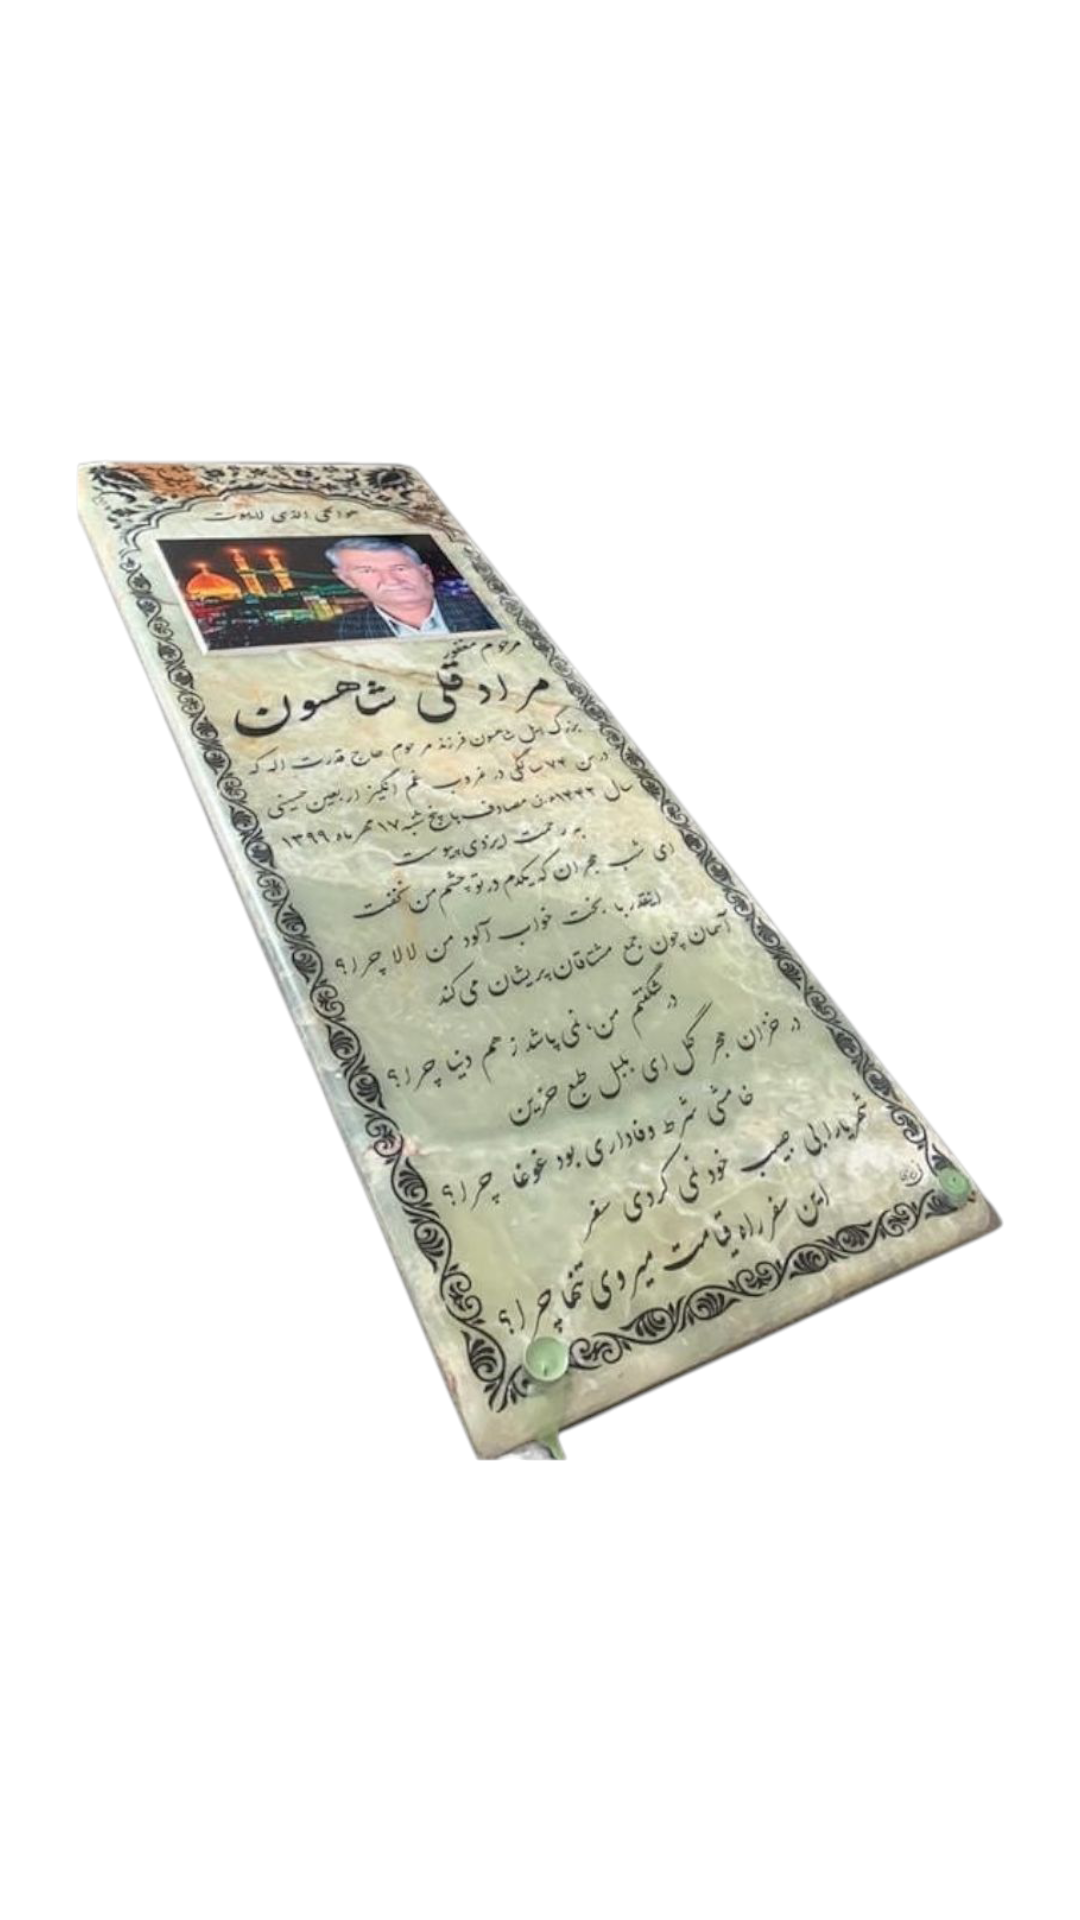 هو الحی الذی لایموت
مرحوم مغفور
مرادقلی شاهسون
بزرگ ایل شاهسون فرزند مرحوم حاج قدرت اله که
در سن ۷۴ سالگی در غروب غم انگیز اربعین حسینی
سال ۱۴۴۲ه.ق مصادف با پنج شنبه ۱۷ مهر ماه ۱۳۹۹
به رحمت ایزدی پیوست
ای شب هجران که یکدم در تو چشم من نخفت
اینقدر با بخت خواب آلود من لالا چرا؟
آسمان چون جمع مشتاقان پریشان می کند
در شگفتم من، نمی پاشد ز هم دنیا چرا؟
در خزان هجر گل ای بلبل طبع حزین
خامشی شرط وفاداری بود غوغا چرا؟
شهریارا بی حبیب خود نمی کردی سفر
این سفر راه قیامت میروی تنها چرا؟